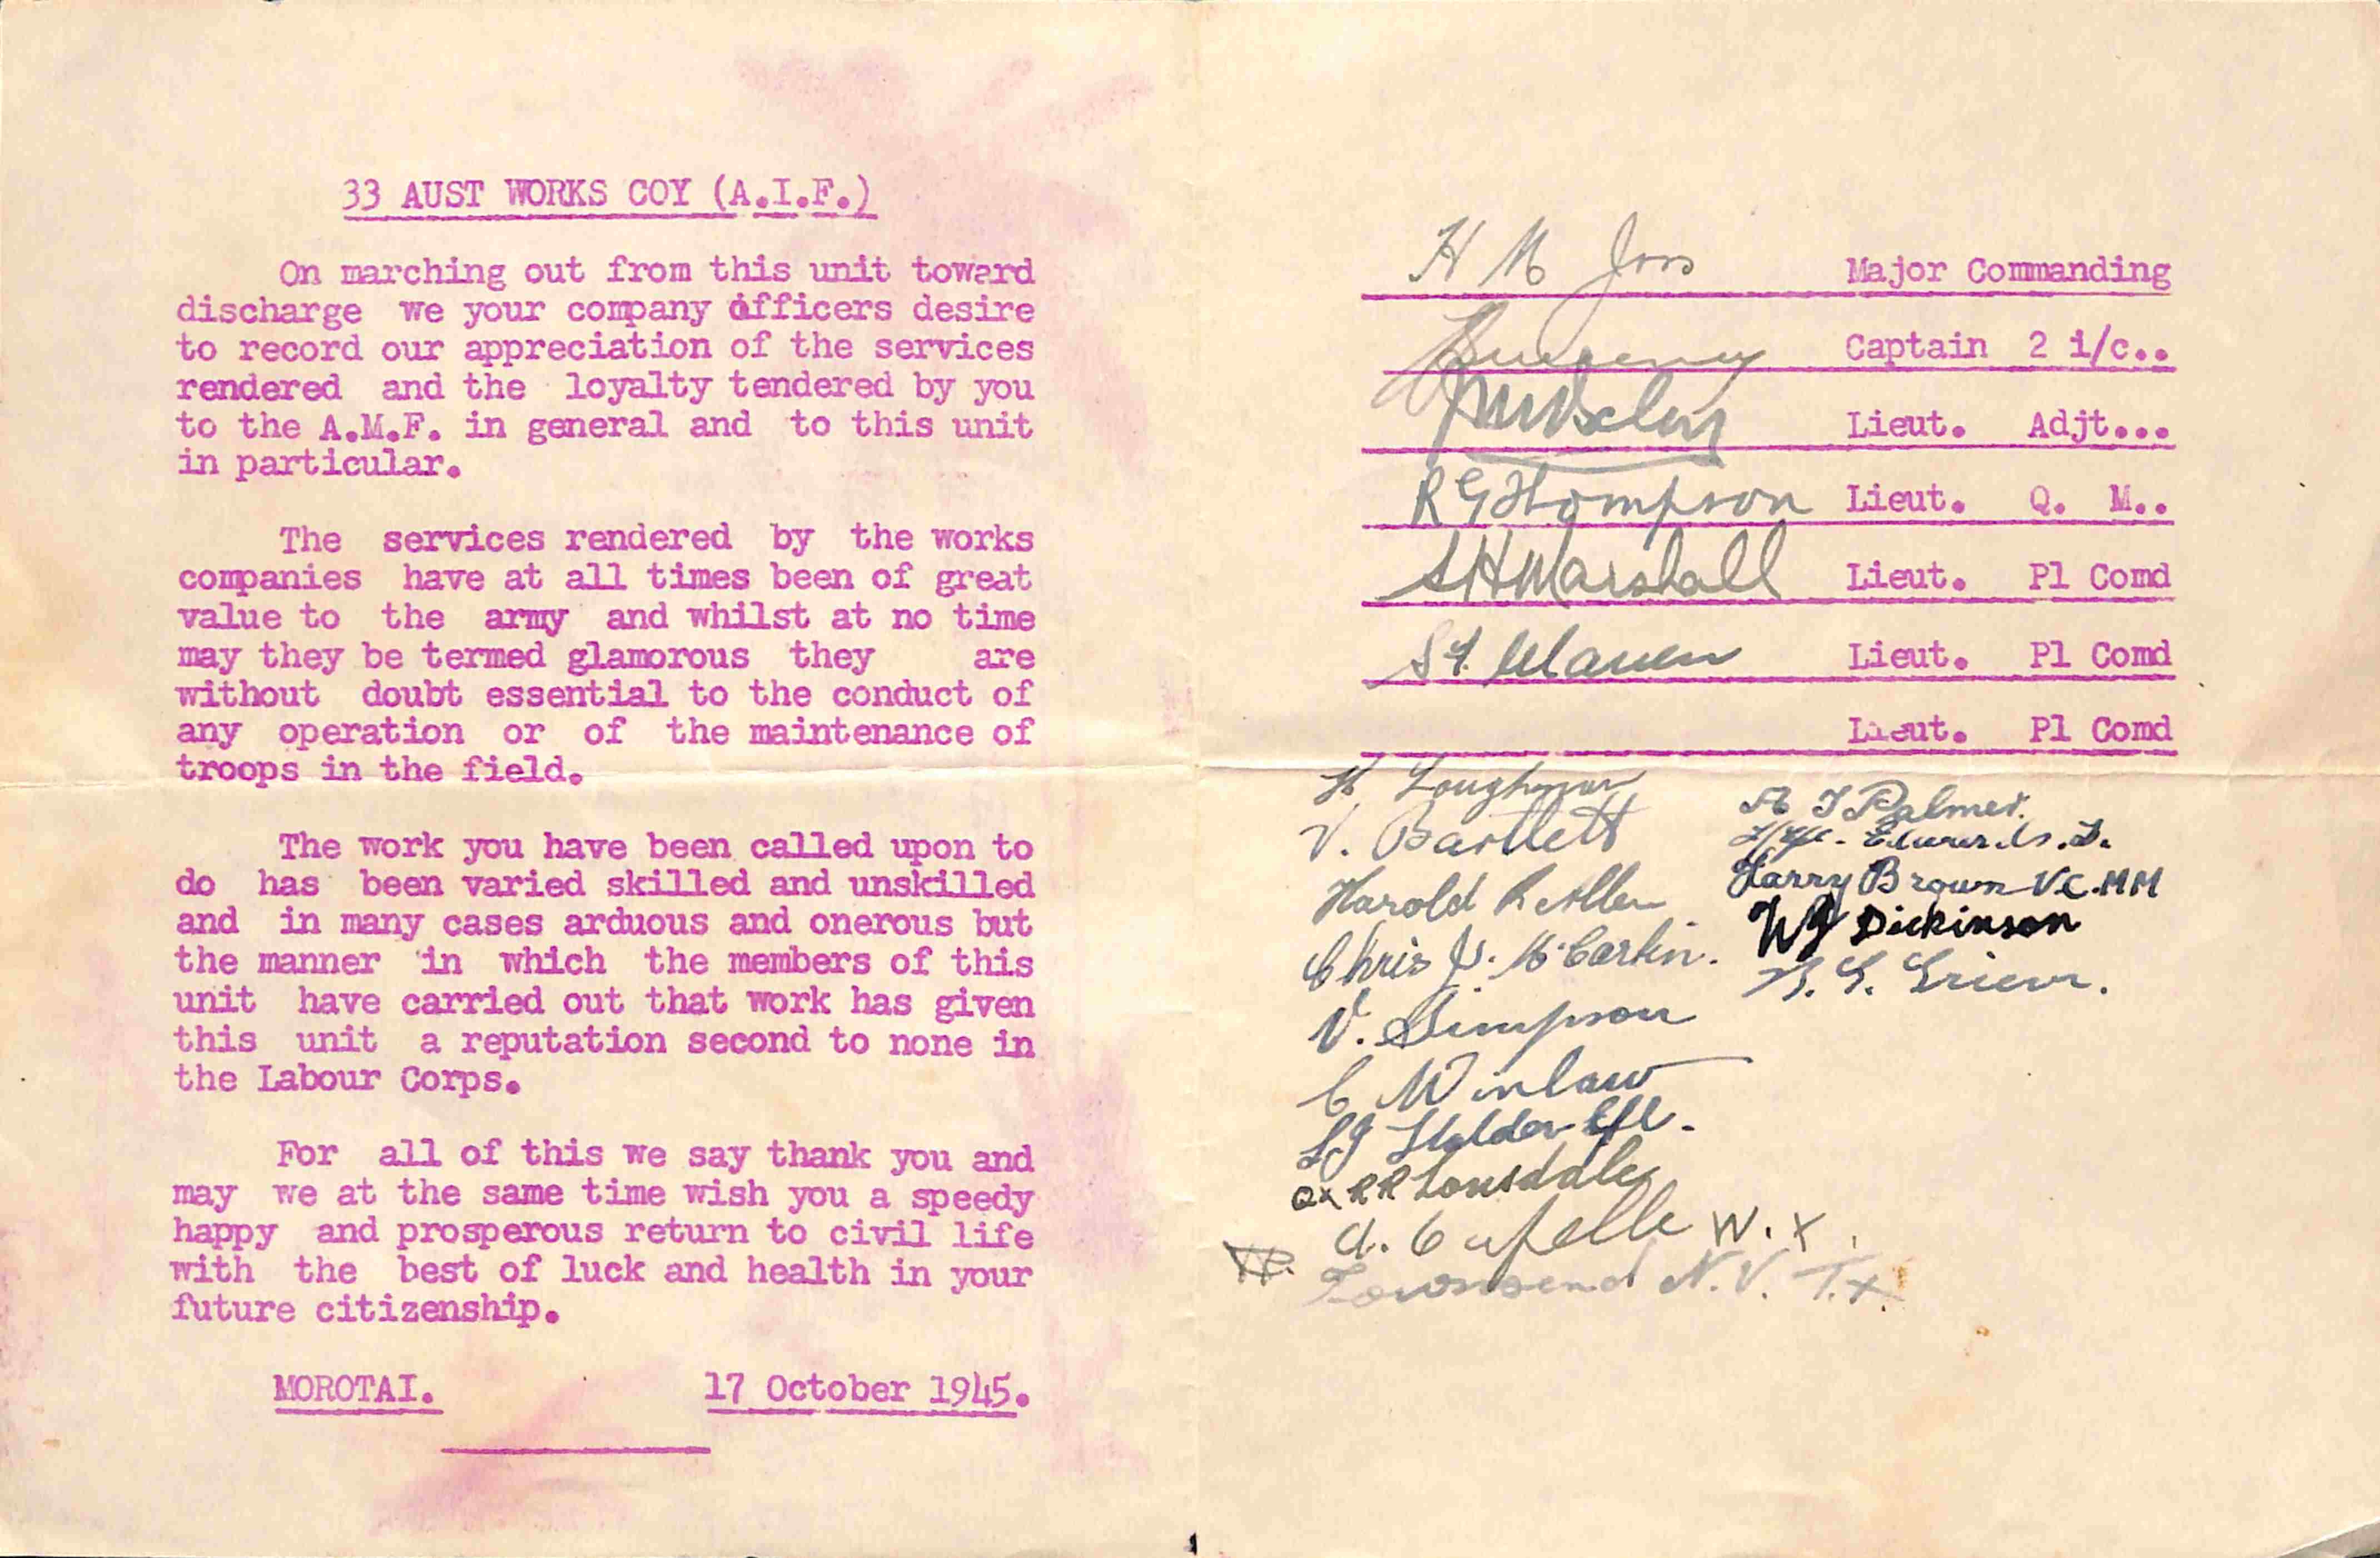 33 AUST WORKS COY (A.I.F.)
On marching out from this unit toward
discharge we your company officers desire
to record our appreciation of the services
rendered and the loyalty tendered by you
to the A.M.F. in general and to this unit
in particular.
The services rendered by the works
companies have at all times been of great
value to the army and whilst at no time
may they be termed glamorous they are
without doubt essential to the conduct of
any operation or of the maintenance of
troops in the field.
The work you have been called upon to
do has been varied skilled and unskilled
and in many cases arduous and onerous but
the manner in which the members of this
unit have carried out that work has given
this unit a reputation second to none in
the Labour Corps.
For all of this we say thank you and
may we at the same time wish you a speedy
happy and prosperous return to civil life
with the best of luck and health in your
future citizenship.
MOROTAI. 17 October 1945.
H M Joss Major Commanding
Captain 2 i/c..
Lieut. Adjt...
R G Thompson Lieut. Q. M..
S H Marshall Lieut. Pl Comd
Lieut. Pl Comd
Lieut. Pl Comd
V. Bartlett
Harold R Allen
Chris J.
V. Simpson
C Winlaw
Cpl.
QX R R Lonsdale
A. Capelle W.X.
Townsend N.V. T.X.
A J Palmer.
Harry Brown V.C. MM
Dickinson